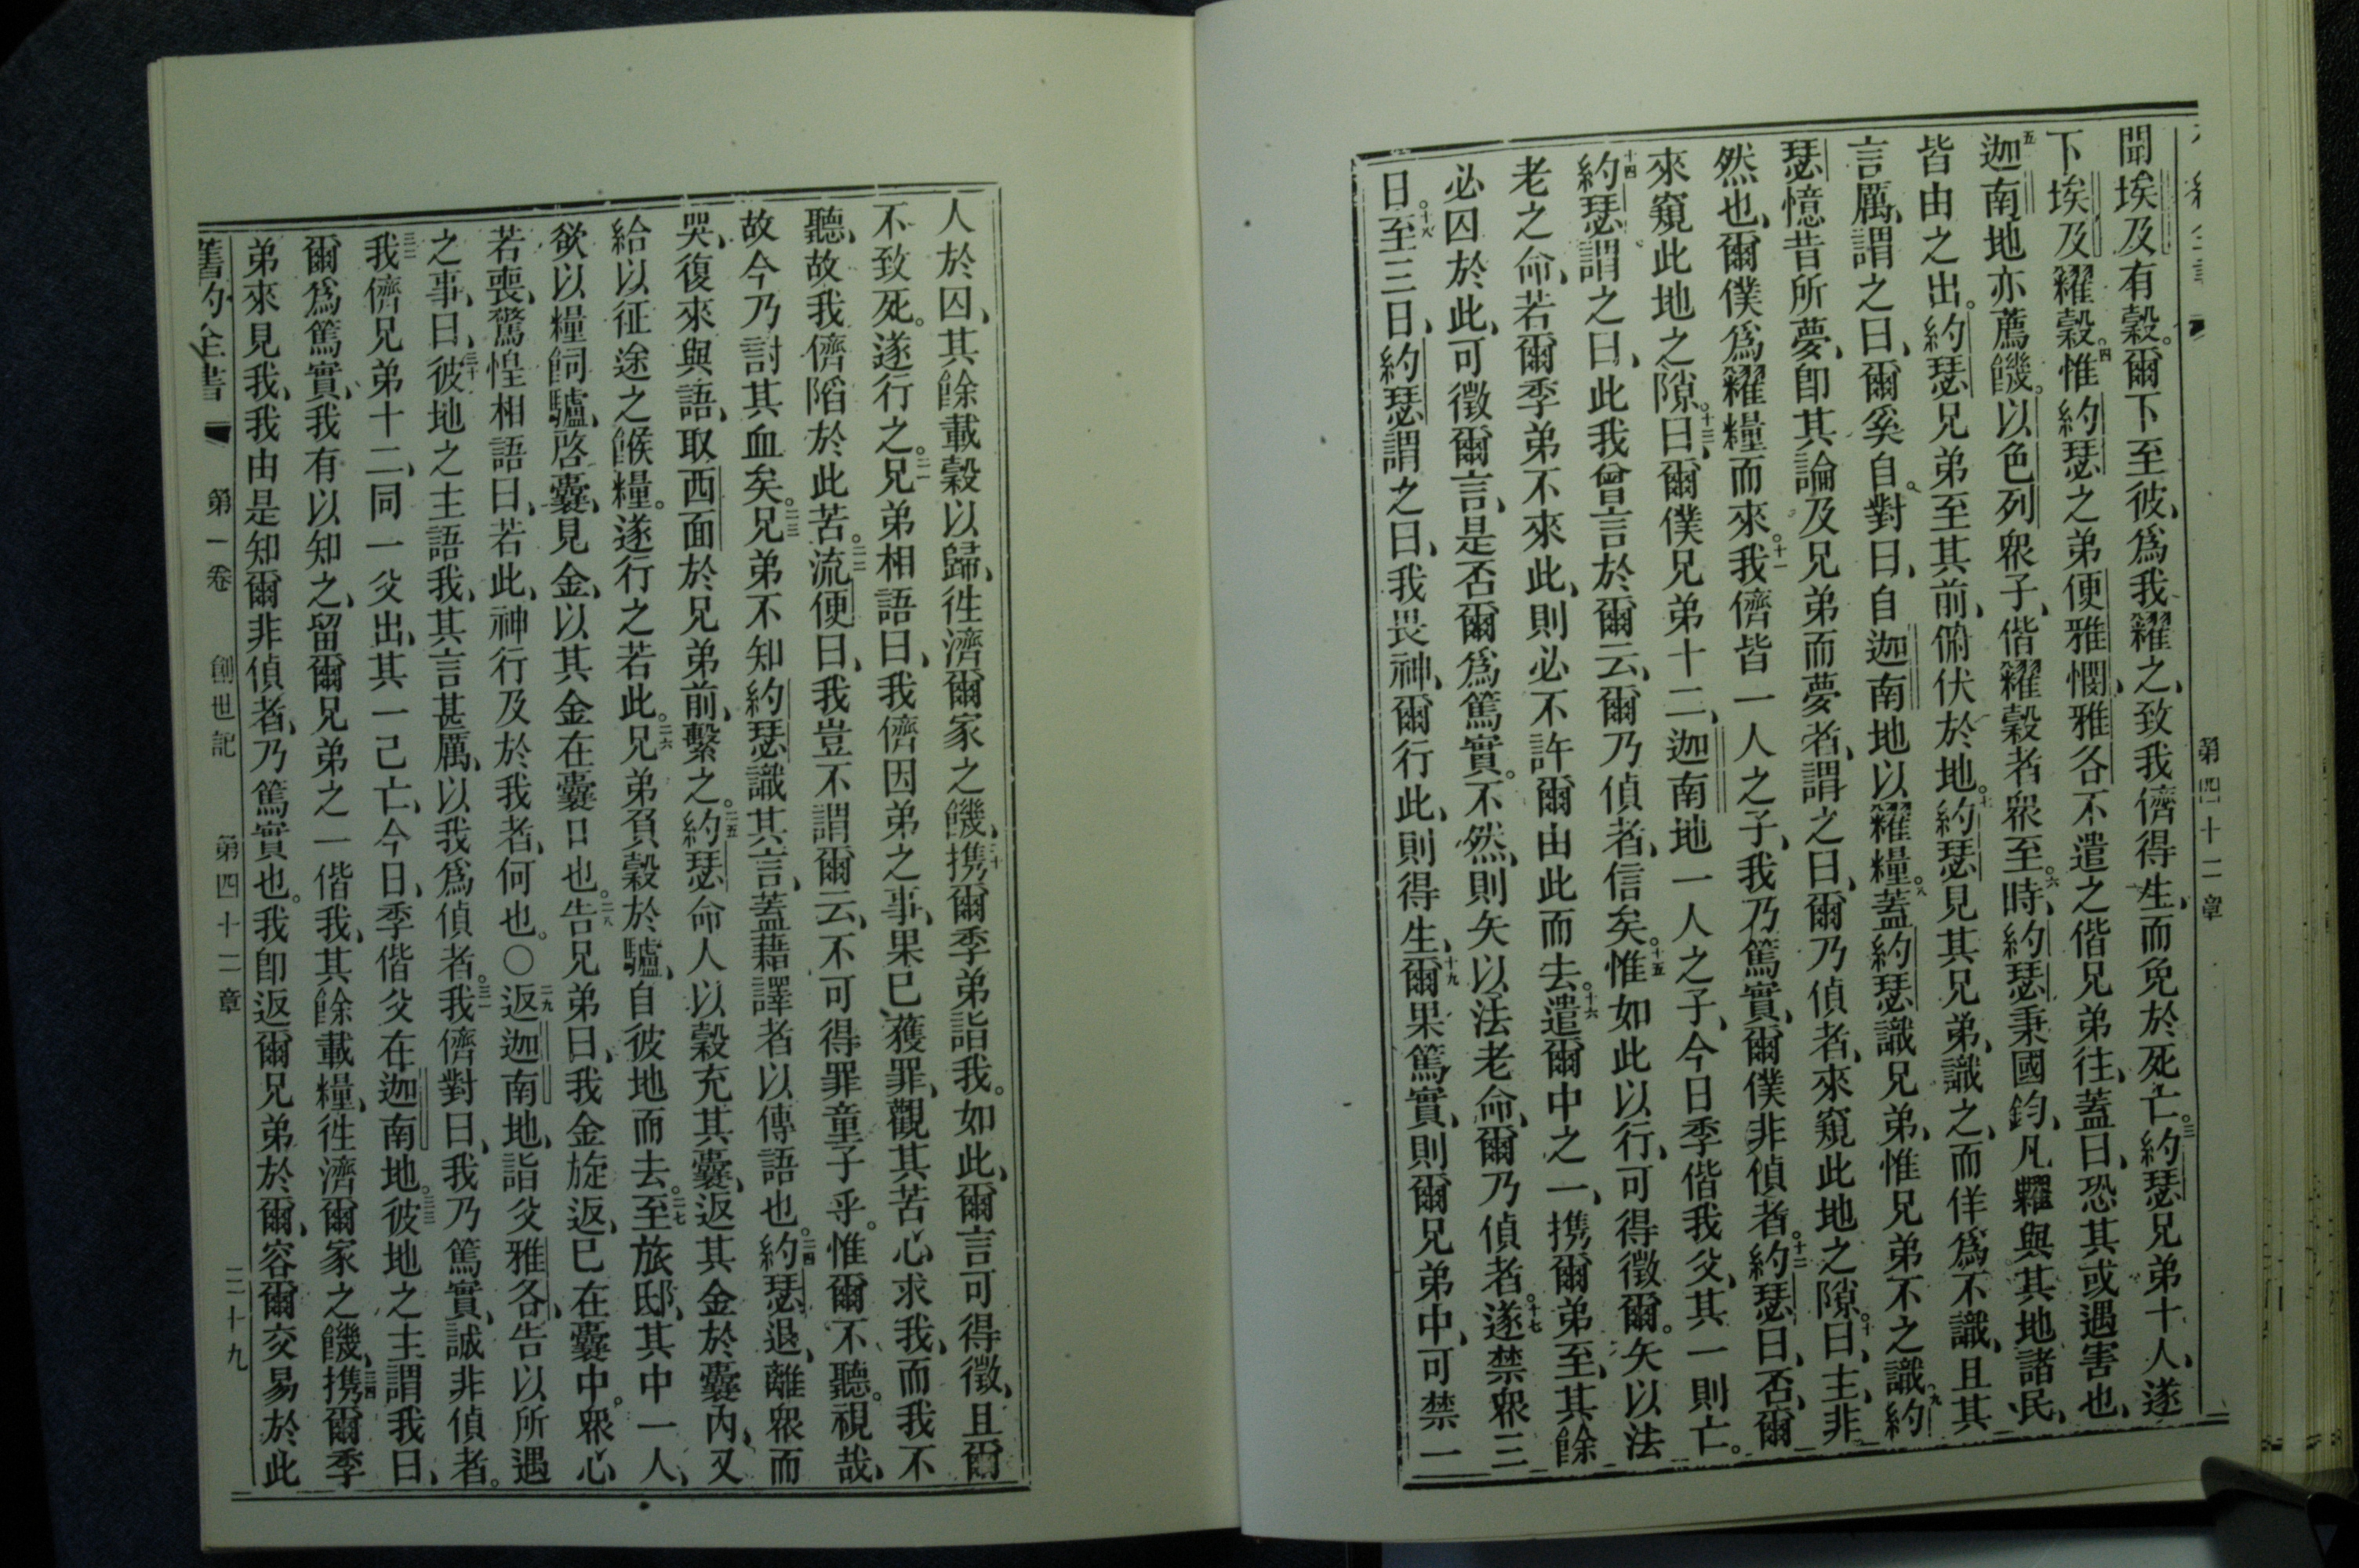 第四十二章
聞埃及有穀。爾下至彼、爲我糴之、致我儕得生、而免於死亡。三約瑟兄弟十人、遂
下埃及糴穀。四惟約瑟之弟便雅憫、雅各不遣之偕兄弟往、蓋曰、恐其或遇害也、
五迦南地亦薦饑。以色列衆子、偕糴穀者衆至。六時、約瑟秉國鈞、凡糶與其地諸民、
皆由之出。約瑟兄弟至其前、俯伏於地。七約瑟見其兄弟、識之、而佯爲不識、且其
言厲、謂之曰、爾奚自。對曰、自迦南地以糴糧。八蓋約瑟識兄弟、惟兄弟不之識。九約
瑟憶昔所夢、卽其論及兄弟而夢者、謂之曰、爾乃偵者、來窺此地之隙。十曰、主、非
然也、爾僕爲糴糧而來。十一我儕皆一人之子、我乃篤實、爾僕非偵者。十二約瑟曰、否、爾
來窺此地之隙。十三曰、爾僕兄弟十二、迦南地一人之子、今日季偕我父、其一則亡。
十四約瑟謂之曰、此我曾言於爾云、爾乃偵者、信矣。十五惟如此以行、可得徵爾。矢以法
老之命、若爾季弟不來此、則必不許爾由此而去。十六遣爾中之一、携爾弟至、其餘
必囚於此、可徵爾言、是否爾爲篤實。不然、則矢以法老命、爾乃偵者。十七遂禁衆三
日。十八至三日、約瑟謂之曰、我畏神、爾行此、則得生、十九爾果篤實、則爾兄弟中、可禁一
人於囚、其餘載穀以歸、徃濟爾家之饑、二十携爾季弟詣我。如此、爾言可得徵、且爾
不致死。遂行之。二一兄弟相語曰、我儕因弟之事、果已獲罪、觀其苦心求我、而我不
聽、故我儕陷於此苦。二二流便曰、我豈不謂爾云、不可得罪童子乎。惟爾不聽。視哉、
故今乃討其血矣。二三兄弟不知約瑟識其言、蓋藉譯者以傳語也。二四約瑟退、離衆而
哭、復來與語、取西面於兄弟前、繫之。二五約瑟命人以穀充其囊、返其金於囊內、又
給以征途之餱糧。遂行之若此。二六兄弟負穀於驢、自彼地而去。二七至旅邸、其中一人、
欲以糧飼驢、啓囊、見金、以其金在囊口也。二八告兄弟曰、我金旋返、已在囊中。衆心
若喪、驚惶相語曰、若此、神行及於我者、何也。〇二九返迦南地、詣父雅各、告以所遇
之事、曰、三十彼地之主語我、其言甚厲、以我爲偵者。三一我儕對曰、我乃篤實、誠非偵者。
三二我儕兄弟十二、同一父出、其一已亡、今日、季偕父在迦南地。三三彼地之主謂我曰、
爾爲篤實、我有以知之、留爾兄弟之一偕我、其餘載糧、徃濟爾家之饑、三四携爾季
弟來見我、我由是知爾非偵者、乃篤實也。我卽返爾兄弟於爾、容爾交易於此
舊約全書 第一卷 創世記 第四十二章 二十九